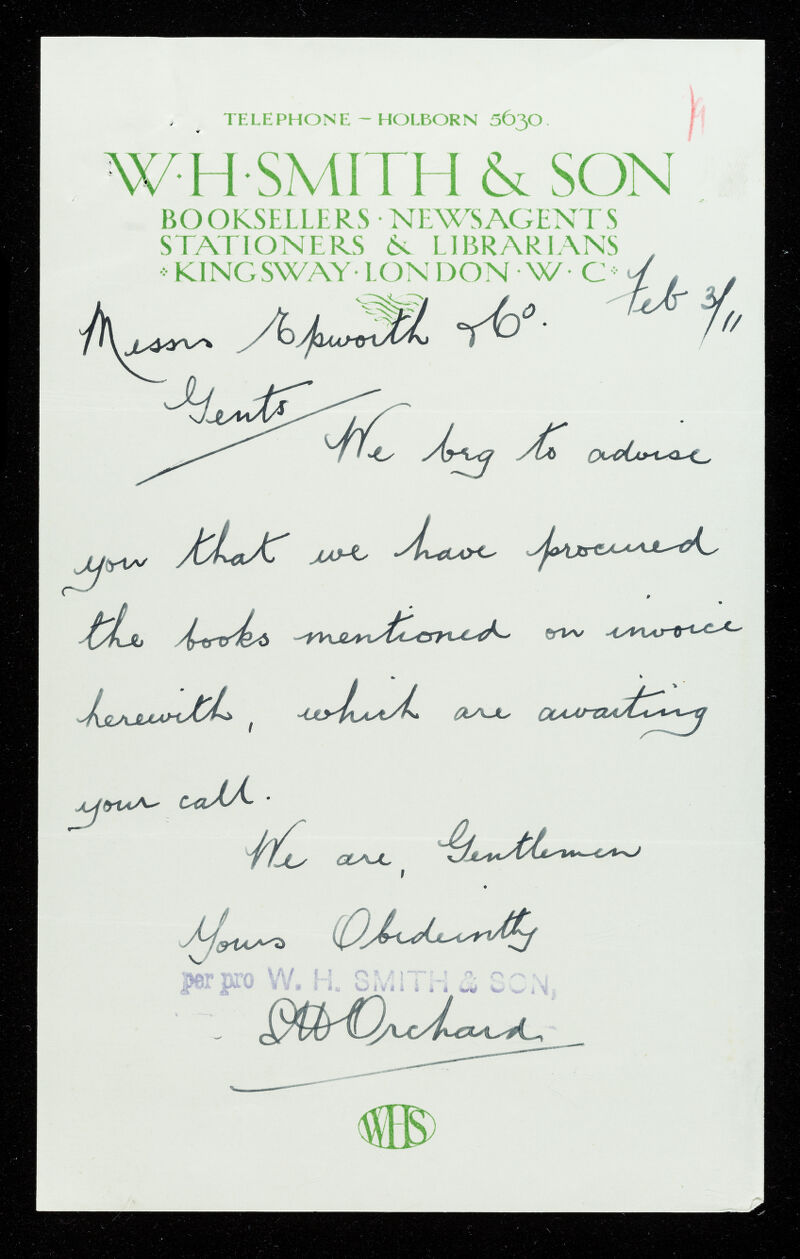 TELEPHONE – HOLBORN 5630.
W·H·SMITH & SON
BOOKSELLERS · NEWSAGENTS
STATIONERS & LIBRARIANS
KINGSWAY · LONDON · W · C
Feb 3/11
Messrs Epworth & Co.
Gents
We beg to advise
you that we have procured
the books mentioned on invoice
herewith, which are awaiting
your call.
We are, Gentlemen
Yours Obideintly
per pro W. H. SMITH & SON,
Orchard
WHS